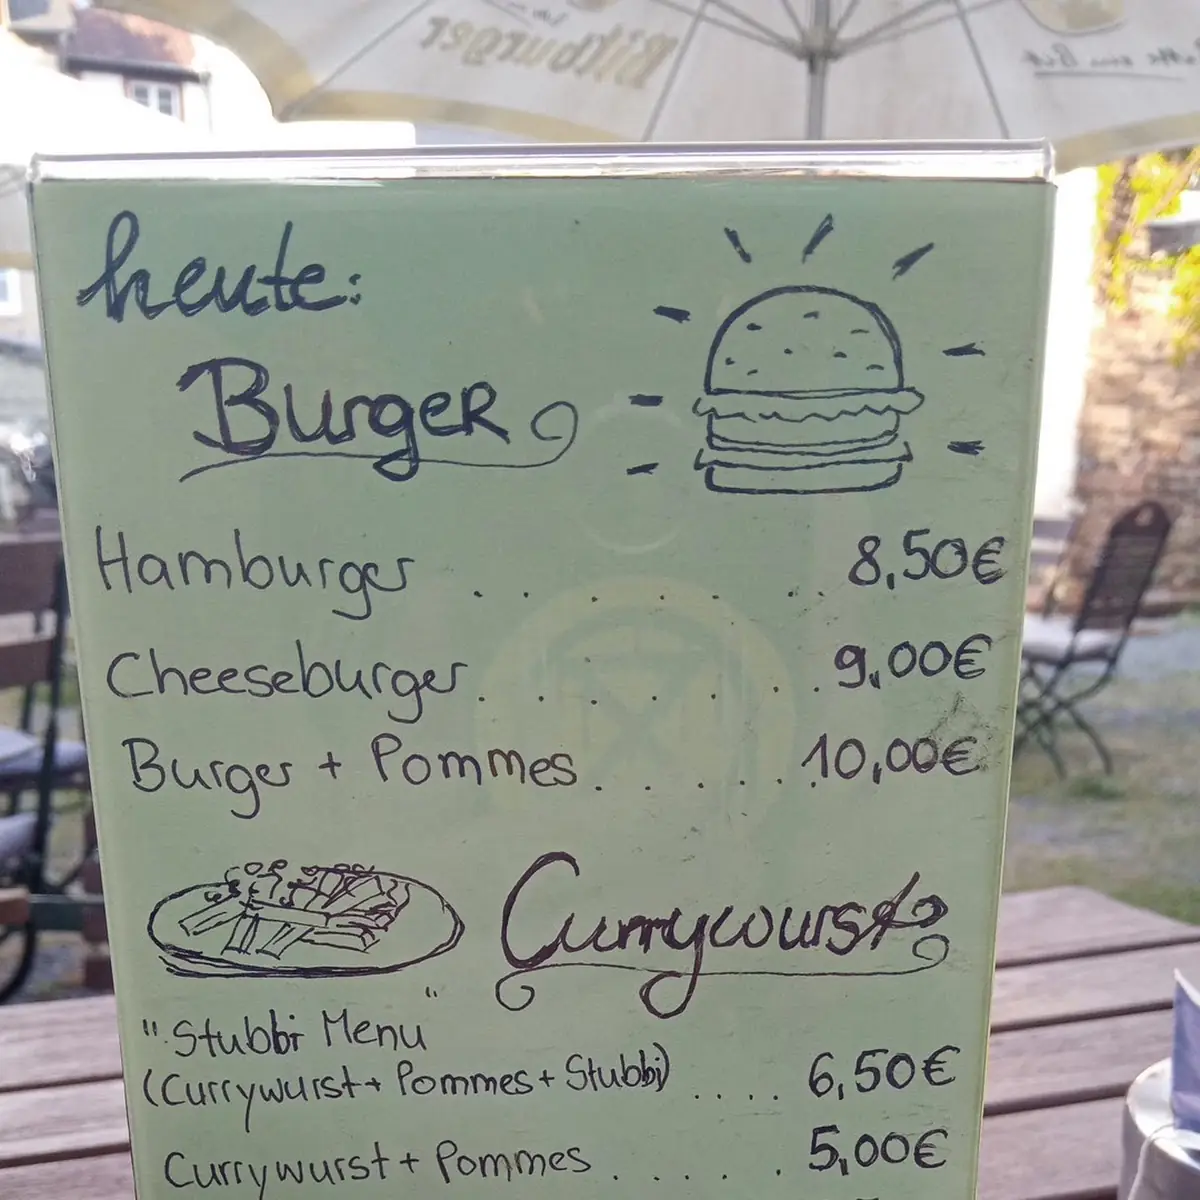 Bitburger
heute:
Burger
Hamburger . . . . . . . 8,50€
Cheeseburger . . . . . . . 9,00€
Burger + Pommes . . . . . . 10,00€
Currywurst
"Stubbi Menu"
(Currywurst + Pommes + Stubbi) . . . . 6,50€
Currywurst + Pommes . . . . . 5,00€